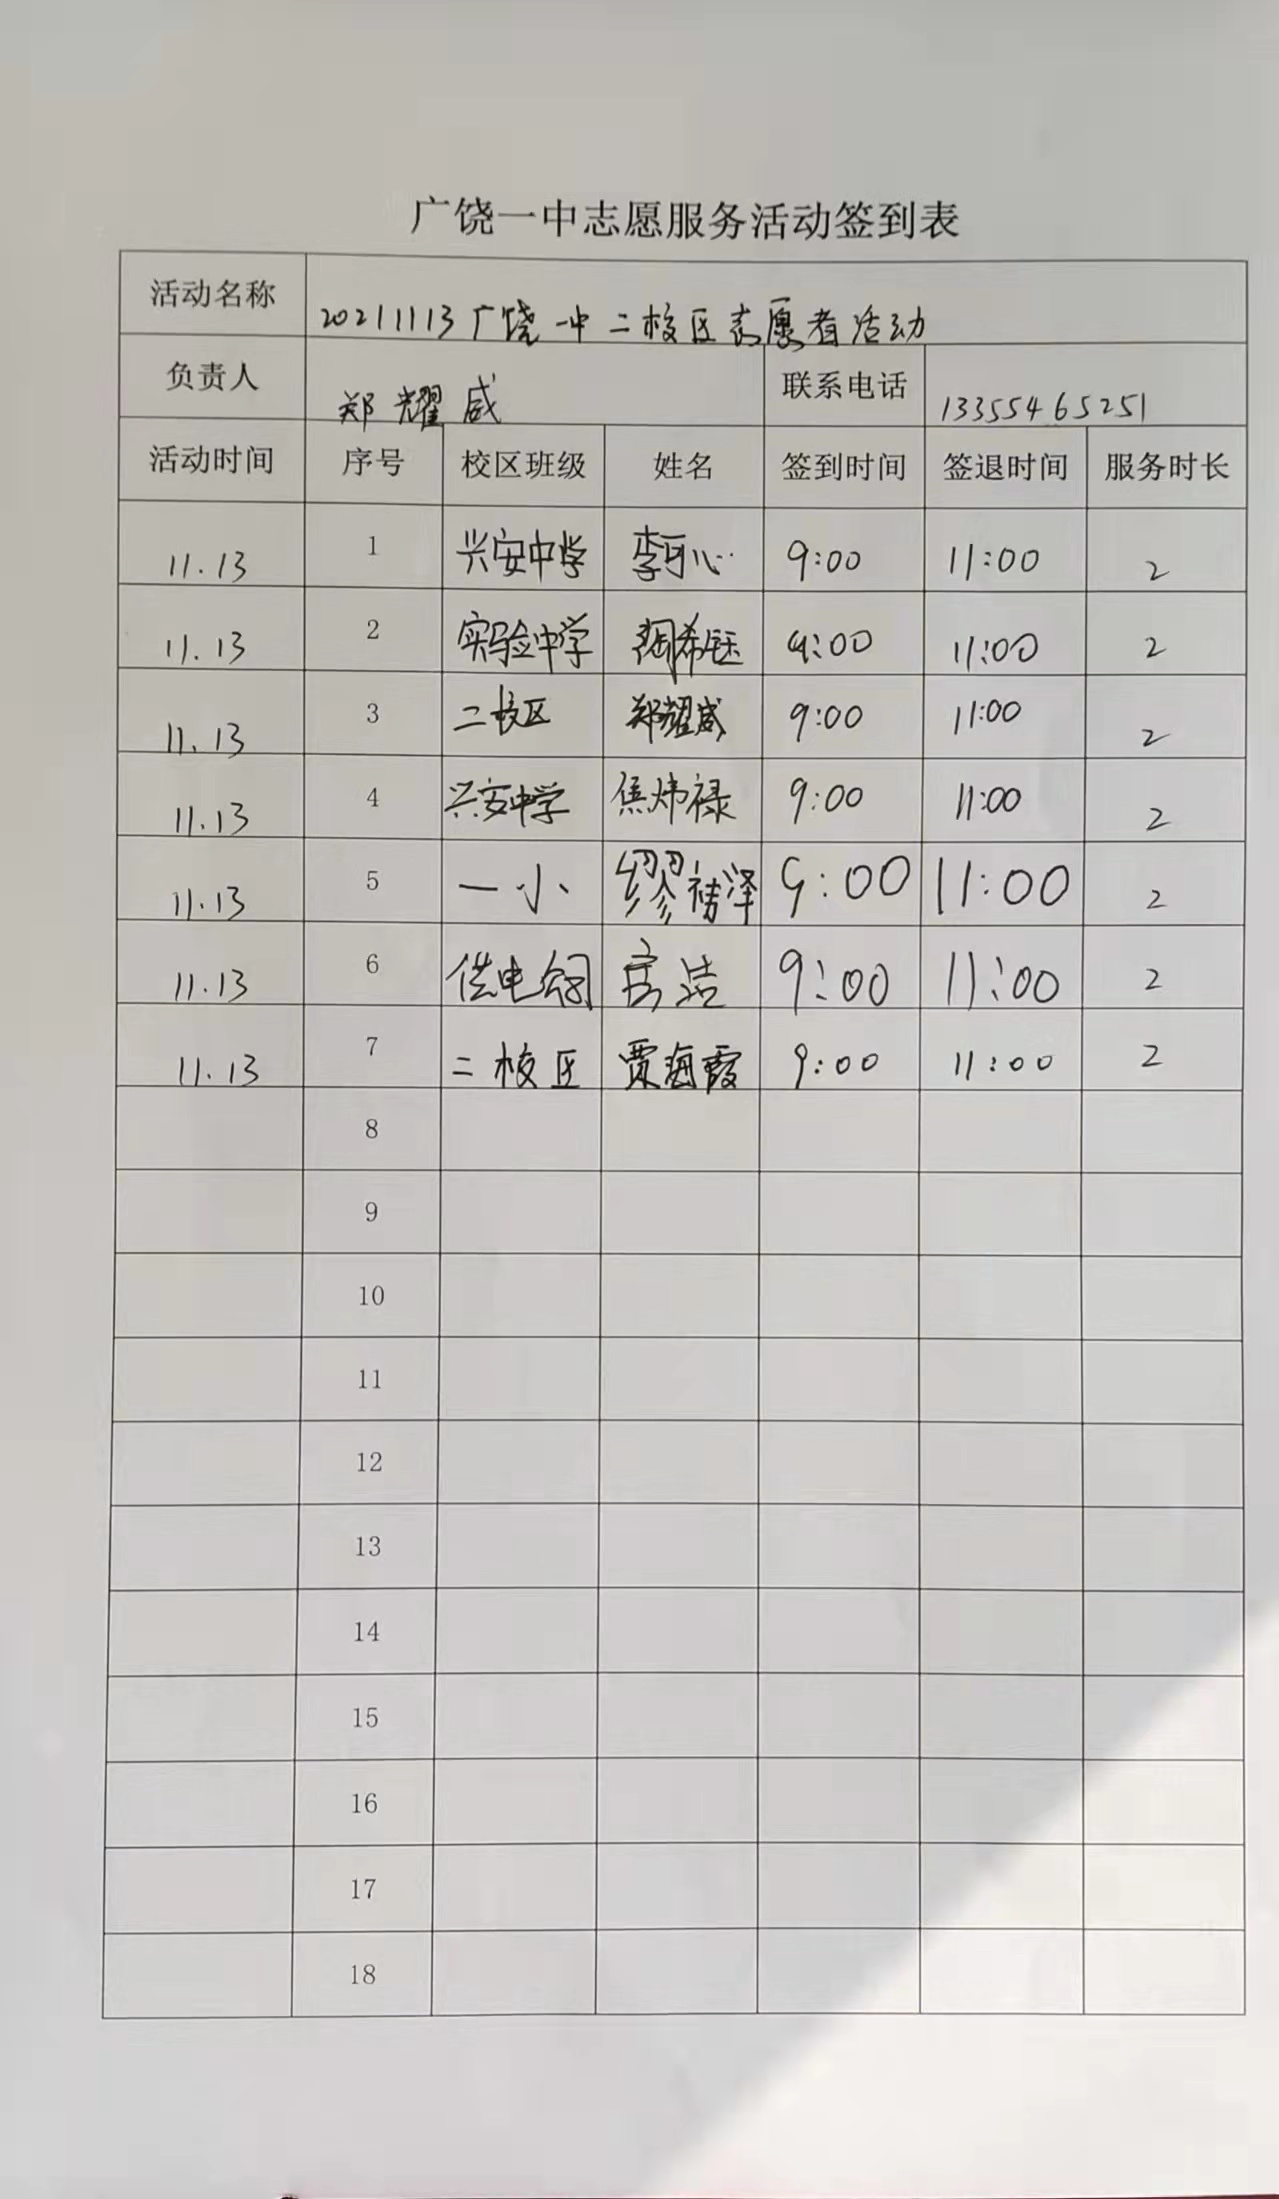 广饶一中志愿服务活动签到表
活动名称 20211113广饶一中二校区志愿者活动
负责人 郑耀威 联系电话 13355465251
活动时间 序号 校区班级 姓名 签到时间 签退时间 服务时长
11.13 1 兴安中学 李可心 9:00 11:00 2
11.13 2 实验中学 希钰 9:00 11:00 2
11.13 3 二校区 郑耀威 9:00 11:00 2
11.13 4 兴安中学 焦炜禄 9:00 11:00 2
11.13 5 一小 缪泽 9:00 11:00 2
11.13 6 供电公司 房洁 9:00 11:00 2
11.13 7 二校区 贾海霞 9:00 11:00 2
8
9
10
11
12
13
14
15
16
17
18